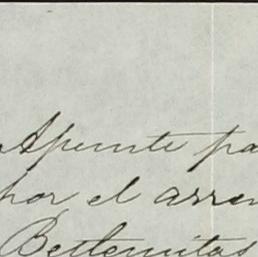 Apunte pa
por el arren
Betlemitas